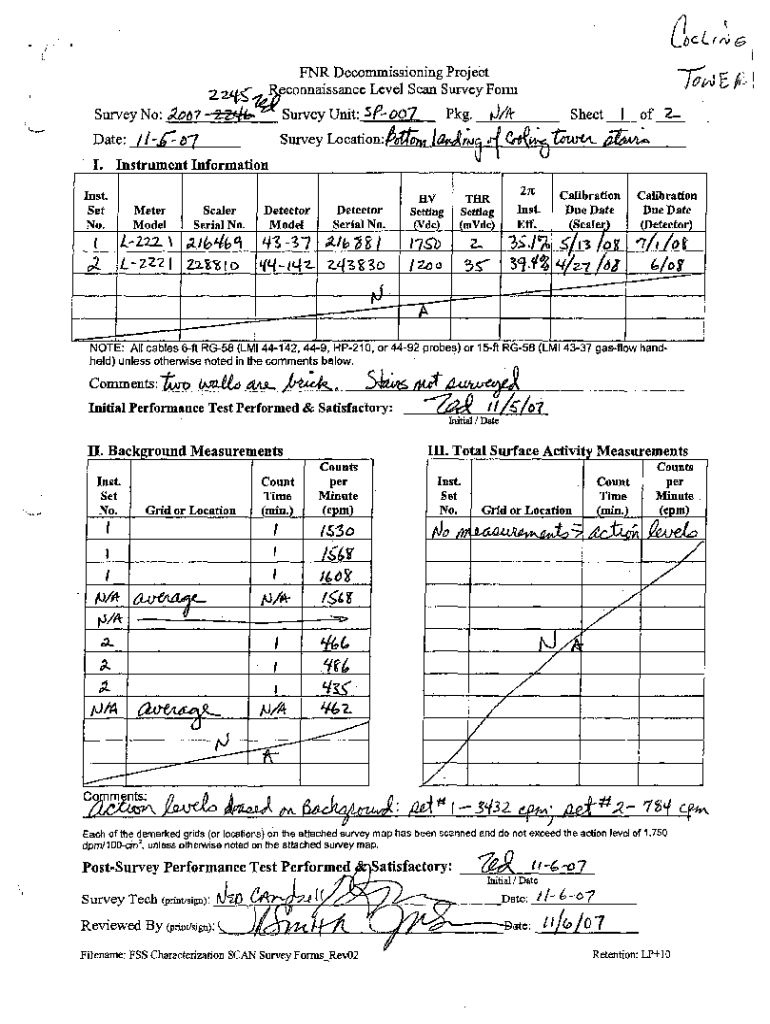 Cooling
Tower!
FNR Decommissioning Project
2245 Reconnaissance Level Scan Survey Form
Survey No: 2007-2246 Survey Unit: SP-007 Pkg. N/A Sheet 1 of 2
Date: 11-5-07 Survey Location: Bottom landing of Cooling tower stairs
I. Instrument Information
Inst. Set No. Meter Model Scaler Serial No. Detector Model Detector Serial No. HV Setting (Vdc) THR Setting (mVdc) 2π Inst. Eff. Calibration Due Date (Scaler) Calibration Due Date (Detector)
1 L-2221 216469 43-37 216881 1750 2 35.1% 5/13/08 7/1/08
2 L-2221 228810 44-142 243830 1200 35 39.4% 4/27/08 6/08
N A
NOTE: All cables 6-ft RG-58 (LMI 44-142, 44-9, HP-210, or 44-92 probes) or 15-ft RG-58 (LMI 43-37 gas-flow hand-
held) unless otherwise noted in the comments below.
Comments: two walls are brick. Stairs not surveyed
Initial Performance Test Performed & Satisfactory: 11/5/07
Initial / Date
II. Background Measurements
Inst. Set No. Grid or Location Count Time (min.) Counts per Minute (cpm)
1 1 1530
1 1 1568
1 1 1608
N/A average N/A 1568
N/A
2 1 466
2 1 486
2 1 435
N/A average N/A 462
N A
III. Total Surface Activity Measurements
Inst. Set No. Grid or Location Count Time (min.) Counts per Minute (cpm)
No measurements > action levels
N A
Comments:
action levels based on Background: set #1 - 3432 cpm; set #2 - 784 cpm
Each of the demarked grids (or locations) on the attached survey map has been scanned and do not exceed the action level of 1,750
dpm/100-cm², unless otherwise noted on the attached survey map.
Post-Survey Performance Test Performed & Satisfactory: 11-6-07
Initial / Date
Survey Tech (print/sign): Ned Campbell Date: 11-6-07
Reviewed By (print/sign): Smith Date: 11/6/07
Filename: FSS Characterization SCAN Survey Forms_Rev02 Retention: LP+10